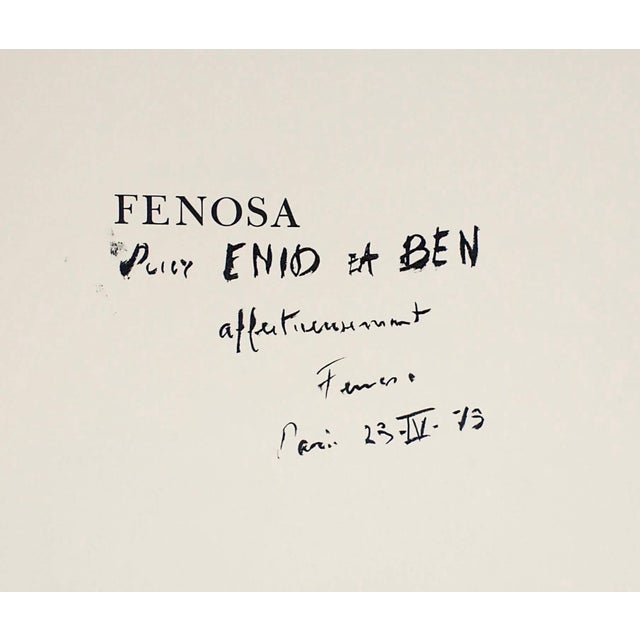 FENOSA
Pour ENID et BEN
affectueusement
Fenosa
Paris 23-IV-73